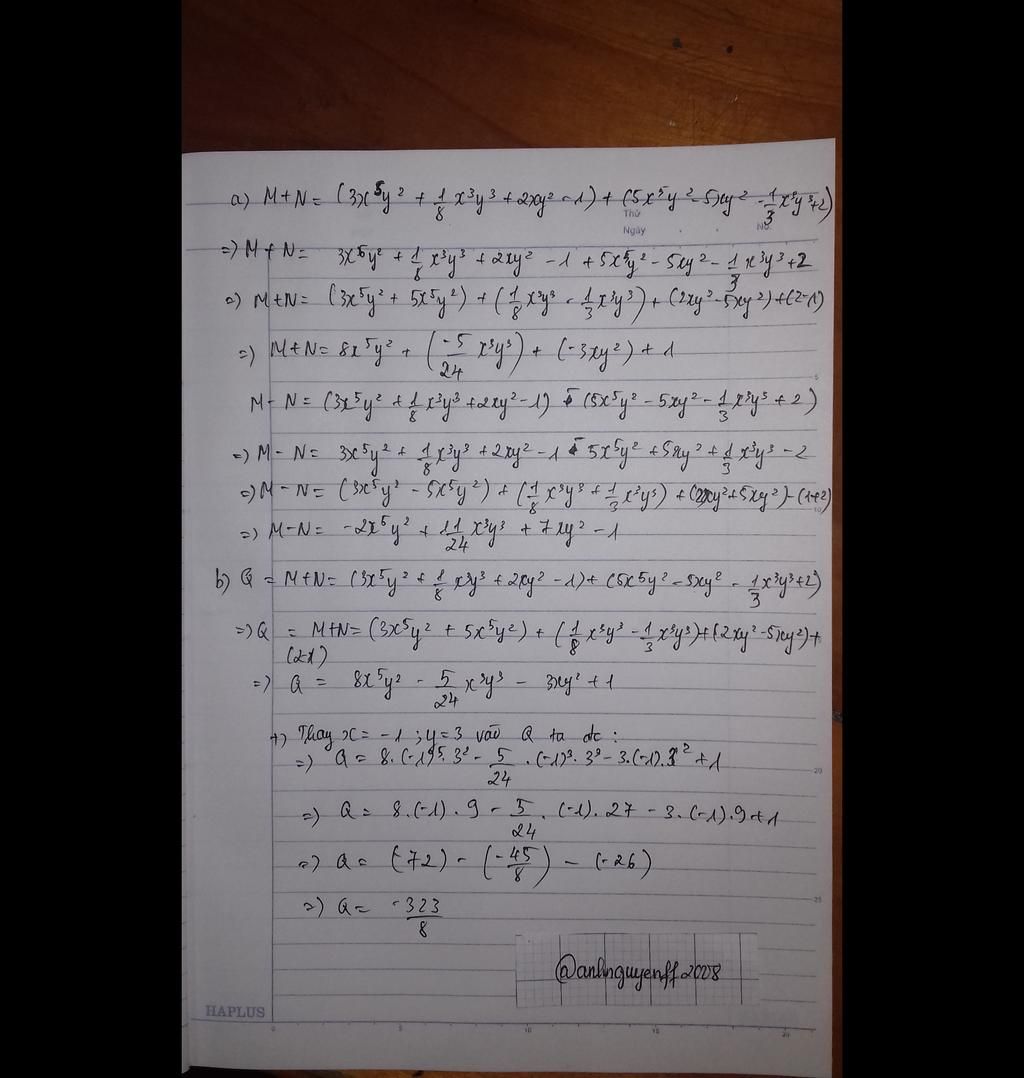 a) M+N = (3x⁵y² + 1/8 x³y³ + 2xy² - 1) + (5x⁵y² - 5xy² - 1/3 x³y³ + 2)
Thứ
Ngày No.
=> M + N = 3x⁵y² + 1/8 x³y³ + 2xy² - 1 + 5x⁵y² - 5xy² - 1/3 x³y³ + 2
=> M+N = (3x⁵y² + 5x⁵y²) + (1/8 x³y³ - 1/3 x³y³) + (2xy² - 5xy²) + (2-1)
=> M+N = 8x⁵y² + (-5/24 x³y³) + (-3xy²) + 1
5
M - N = (3x⁵y² + 1/8 x³y³ + 2xy² - 1) - (5x⁵y² - 5xy² - 1/3 x³y³ + 2)
=> M - N = 3x⁵y² + 1/8 x³y³ + 2xy² - 1 - 5x⁵y² + 5xy² + 1/3 x³y³ - 2
=> M - N = (3x⁵y² - 5x⁵y²) + (1/8 x³y³ + 1/3 x³y³) + (2xy² + 5xy²) - (1+2)
10
=> M - N = -2x⁵y² + 11/24 x³y³ + 7xy² - 1
b) Q = M+N = (3x⁵y² + 1/8 x³y³ + 2xy² - 1) + (5x⁵y² - 5xy² - 1/3 x³y³ + 2)
=> Q = M+N = (3x⁵y² + 5x⁵y²) + (1/8 x³y³ - 1/3 x³y³) + (2xy² - 5xy²) +
(2-1)
=> Q = 8x⁵y² - 5/24 x³y³ - 3xy² + 1
+) Thay x = -1 ; y = 3 vào Q ta dc :
=> Q = 8.(-1)⁵.3² - 5/24 .(-1)³.3³ - 3.(-1).3² + 1
20
=> Q = 8.(-1).9 - 5/24 .(-1).27 - 3.(-1).9 + 1
=> Q = (-72) - (-45/8) - (-26)
=> Q = -323/8
25
@anhnguyenff2008
HAPLUS
0 5 10 15 20